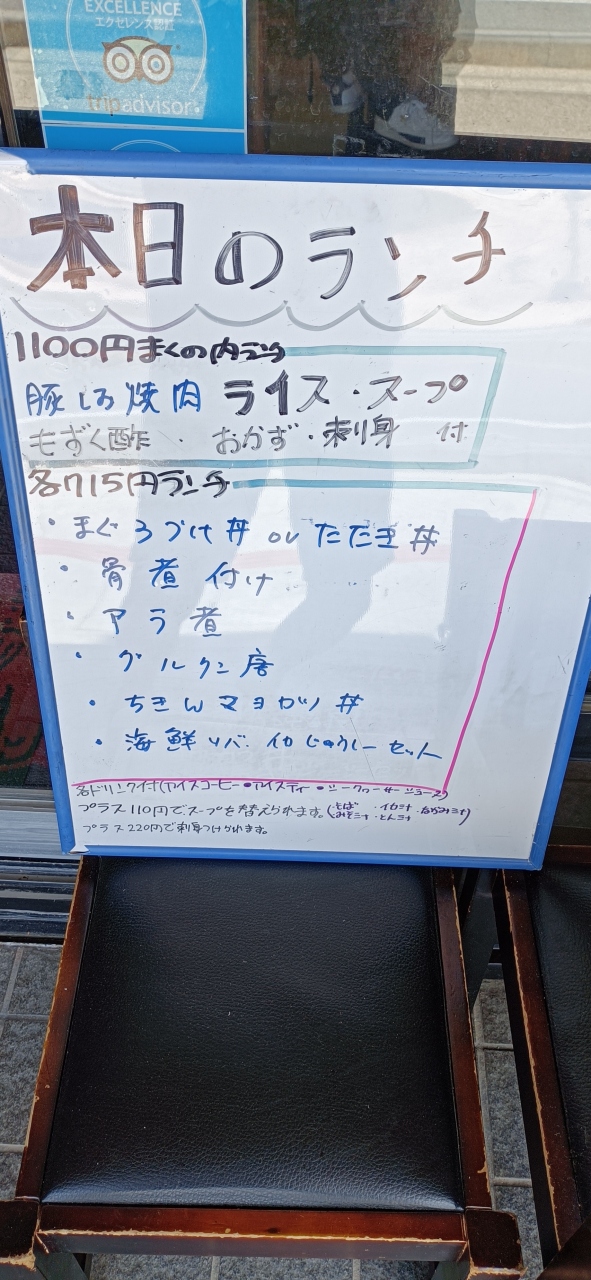 EXCELLENCE
エクセレンス認証
tripadvisor
本日のランチ
1100円まくの内ランチ
豚しお焼肉 ライス・スープ
もずく酢・おかず・刺身 付
各715円ランチ
・まぐろづけ丼 or たたき丼
・骨煮付け
・アラ煮
・グルクン唐
・ちきんマヨカツ丼
・海鮮ソバ イカじゅうしーセット
各ドリンク付(アイスコーヒー・アイスティー・シークヮーサージュース)
プラス110円でスープを替えられます。(そば・イカ汁・なかみ汁
みそ汁・とん汁)
プラス220円で刺身つけられます。